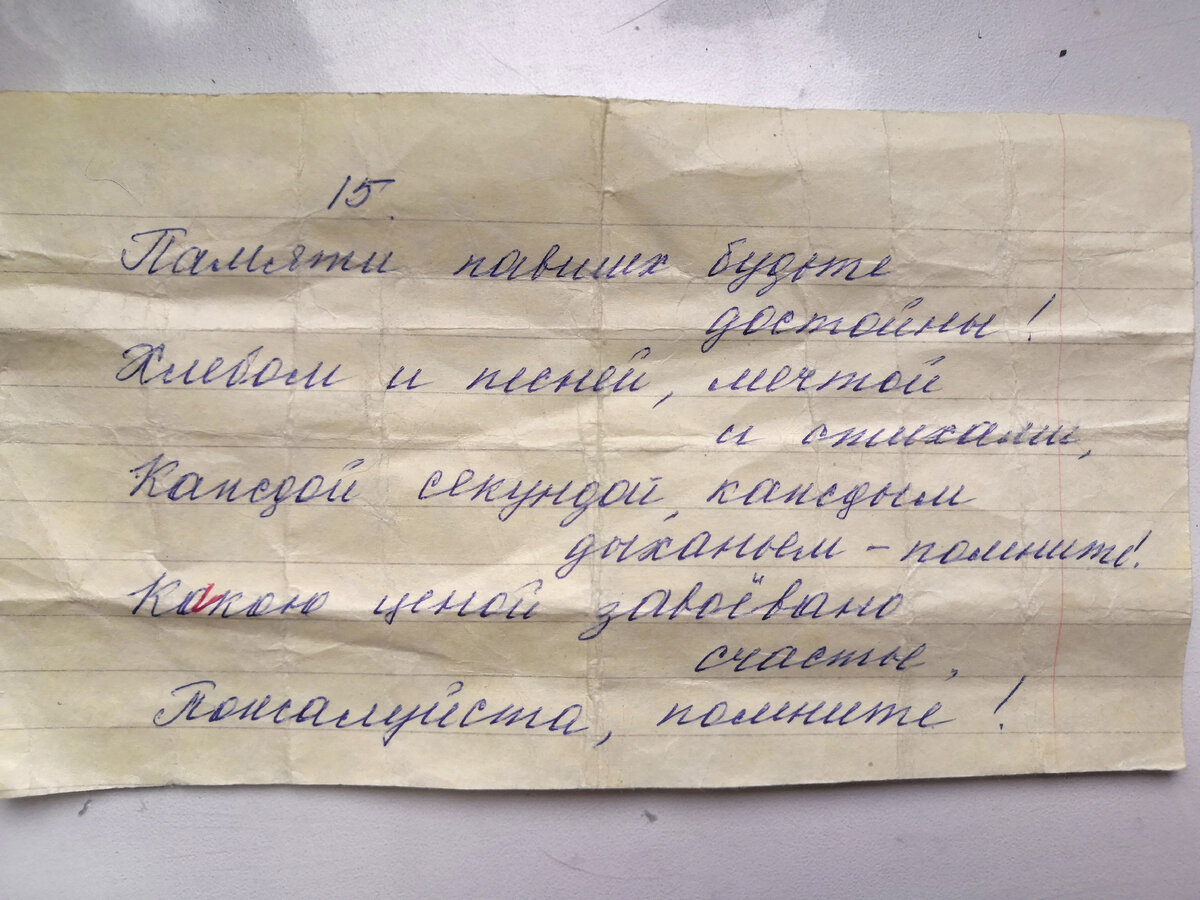 15.
Памяти павших будьте
достойны!
Хлебом и песней, мечтой
и стихами,
Каждой секундой, каждым
дыханьем - помните!
Какою ценой завоёвано
счастье,
Пожалуйста, помните!